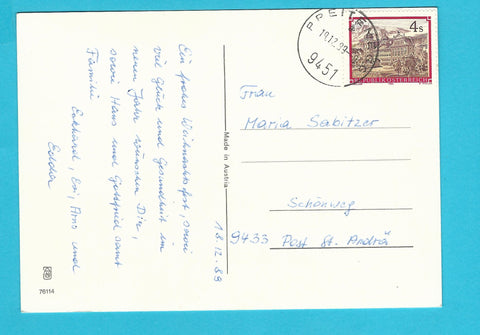 Ein frohes Weihnachtsfest, sowie
viel Glück und Gesundheit im
neuen Jahr wünschen Dir,
sowie Hans und Gottfried samt
Familie
Ekkhard, Evi, Arno und
Eddda
18.12.89
76114
Made in Austria
9451
19.12.89
4s
REPUBLIK ÖSTERREICH
Frau
Maria Sabitzer
Schönweg
9433 Post St. Andrä